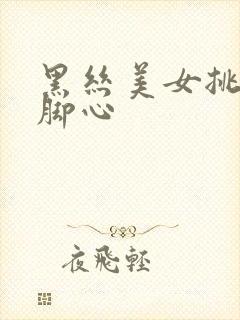 黑丝美女挑
脚心
夜飛輕